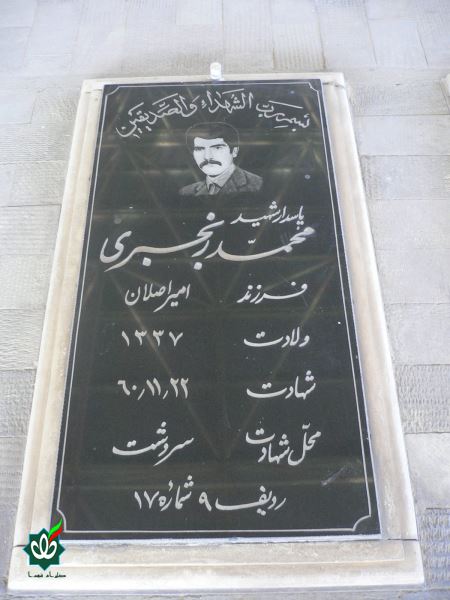 بسم رب الشهداء و الصدیقین
پاسدار شهید
محمد رنجبری
فرزند امیراصلان
ولادت ۱۳۳۷
شهادت ۶۰٫۱۱٫۲۲
محل شهادت سردشت
ردیف ۹ شماره ۱۷